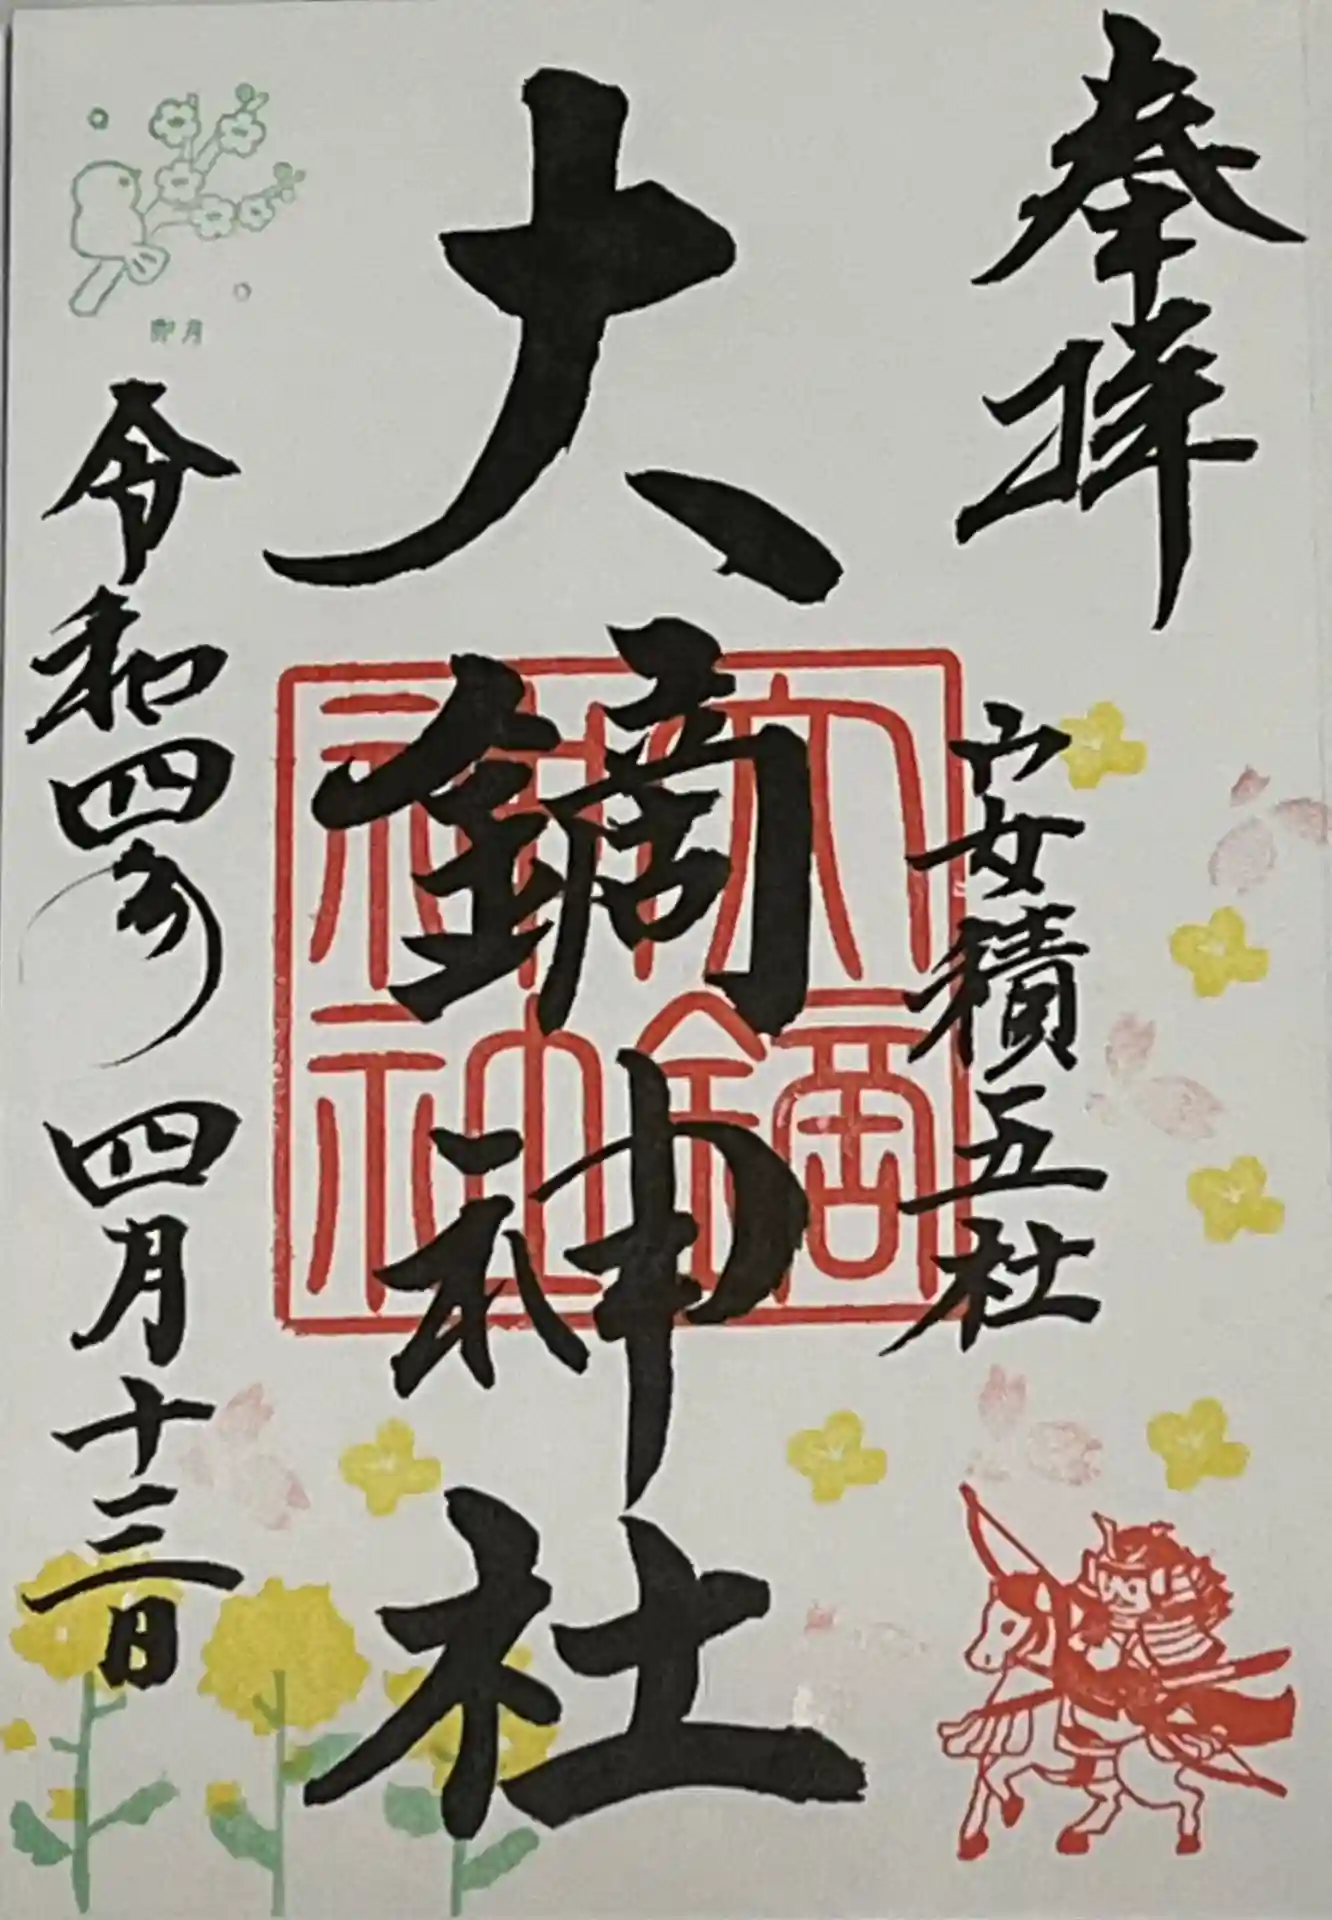 奉拝
安積五社
大鏑神社
大鏑神社
卯月
令和四年 四月十三日